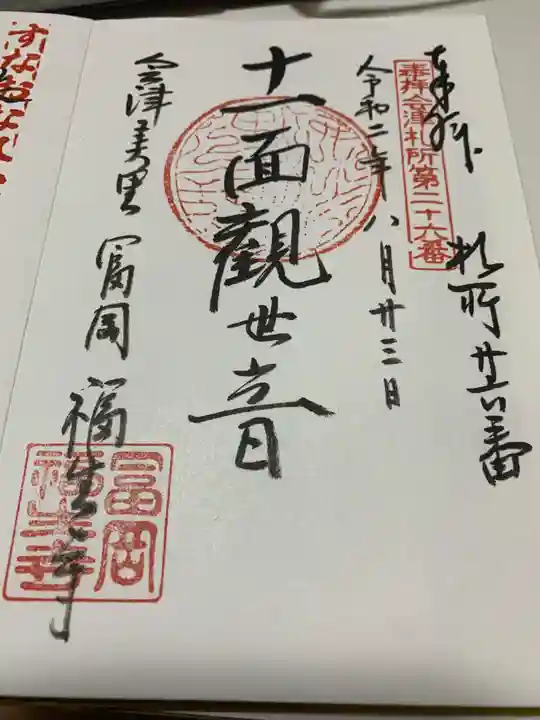 奉拝
札所廿六番
奉拝会津札所第二十六番
令和二年八月廿三日
十一面觀世音
会津美里冨岡福生寺
冨岡福生寺
すなおな